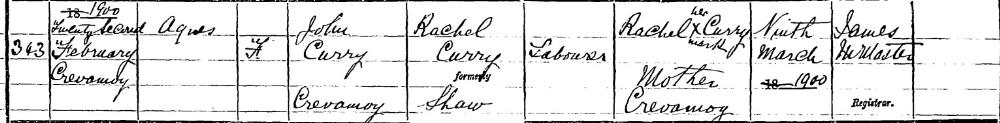 18 1900
Twenty second
February
Crevamoy
343
Agnes
F
John
Curry
Crevamoy
Rachel
Curry
formerly
Shaw
Labourer
Rachel X Curry
her
mark
Mother
Crevamoy
Ninth
March
18 1900
James
McMaster
Registrar.